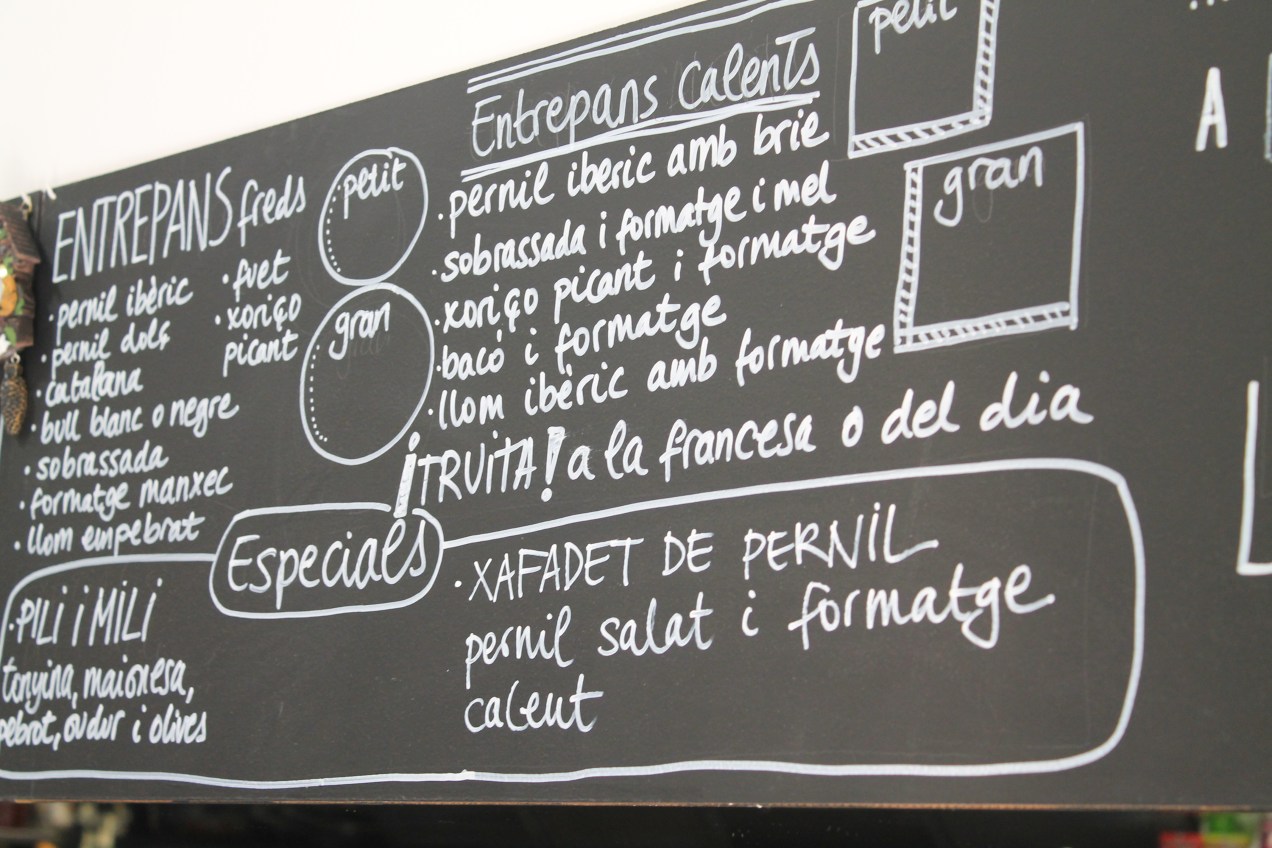 ENTREPANS freds
· pernil ibèric
· pernil dolç
· catalana
· bull blanc o negre
· sobrassada
· formatge manxec
· llom empebrat
· fuet
· xoriço
picant
petit
gran
Entrepans Calents
· pernil iberic amb brie
· sobrassada i formatge i mel
· xoriço picant i formatge
· bacó i formatge
· llom ibèric amb formatge
¡TRUiTA! a la francesa o del dia
petit
gran
A
Especials
· PiLi i MiLi
tonyina, maionesa,
pebrot, ou dur i olives
· XAFADET DE PERNiL
pernil salat i formatge
calent